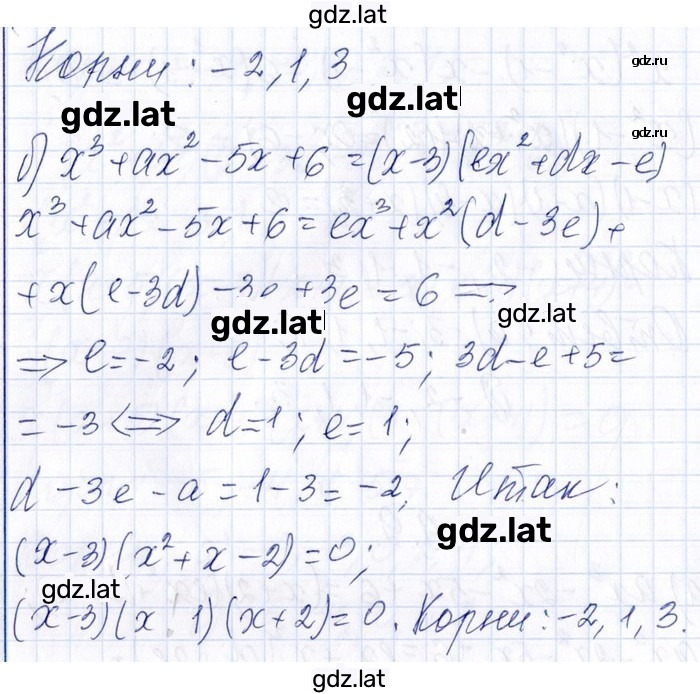 gdz.lat
Корни: -2, 1, 3
gdz.ru
gdz.lat gdz.lat
gdz.ru
б) x³ + ax² - 5x + 6 = (x-3)(ex² + dx - e)
x³ + ax² - 5x + 6 = ex³ + x²(d - 3e) +
+ x(e - 3d) - 3e + 3e = 6 ⟹
gdz.lat gdz.lat
⟹ e = -2; e - 3d = -5; 3d - e + 5 =
= -3 ⟺ d = 1; e = 1;
d - 3e - a = 1 - 3 = -2. Итак:
gdz.lat
(x-3)(x² + x - 2) = 0;
gdz.lat
(x-3)(x 1)(x+2) = 0. Корни: -2, 1, 3.
gdz.lat